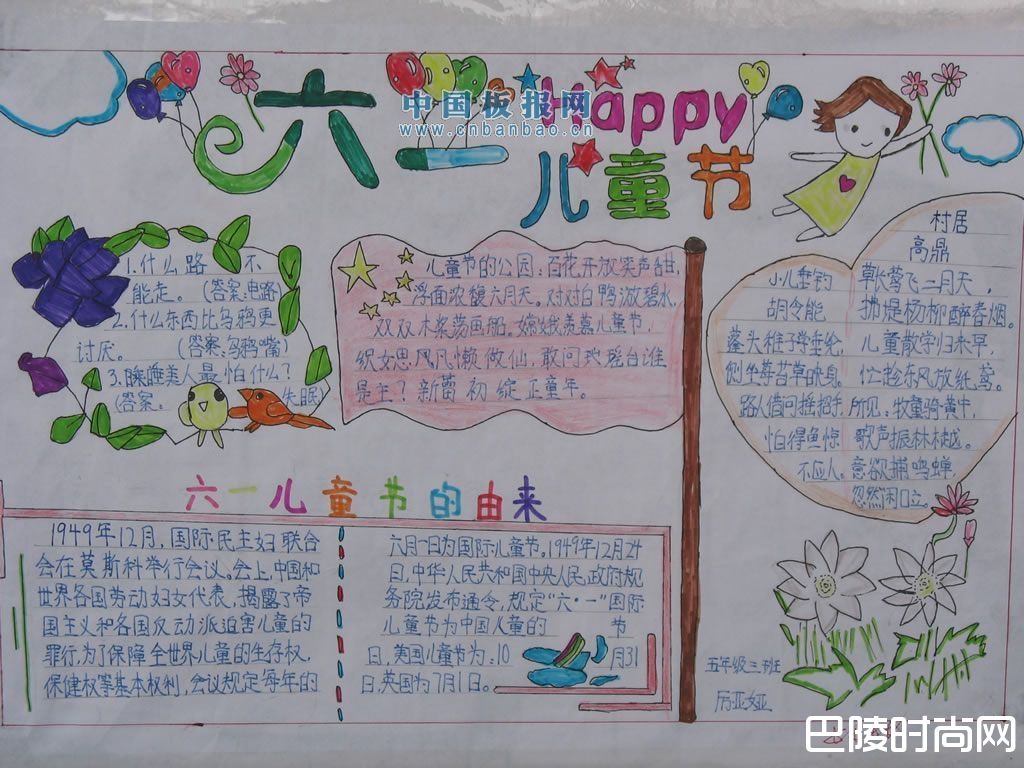 六一
Happy
儿童节
中国板报网
www.cnbanbao.cn
1.什么路 不
能走。(答案:电路)
2.什么东西比乌鸦更
讨厌。(答案:乌鸦嘴)
3.睡美人最怕什么?
(答案. 失眠)
儿童节的公园:百花开放笑声甜,
浮面浓馥六月天。对对白鸭游碧水,
双双木桨荡画船。嫦娥羡慕儿童节,
织女思凡懒做仙。敢问瑶台谁
是主?新蕾初绽正童年。
小儿垂钓
胡令能
蓬头稚子学垂纶,
侧坐莓苔草映身。
路人借问摇招手,
怕得鱼惊
不应人。
村居
高鼎
草长莺飞二月天,
拂堤杨柳醉春烟。
儿童散学归来早,
忙趁东风放纸鸢。
所见:牧童骑黄牛,
歌声振林樾。
意欲捕鸣蝉,
忽然闭口立。
六一儿童节的由来
1949年12月,国际民主妇联合
会在莫斯科举行会议。会上,中国和
世界各国劳动妇女代表,揭露了帝
国主义和各国反动派迫害儿童的
罪行,为了保障全世界儿童的生存权,
保健权等基本权利,会议规定每年的
六月一日为国际儿童节。1949年12月24
日,中华人民共和国中央人民政府规
务院发布通令,规定“六·一”国际
儿童节为中国儿童的 节
日,美国儿童节为:10 月31
日,英国为7月1日。
五年级三班
厉亚娅
巴陵时尚网